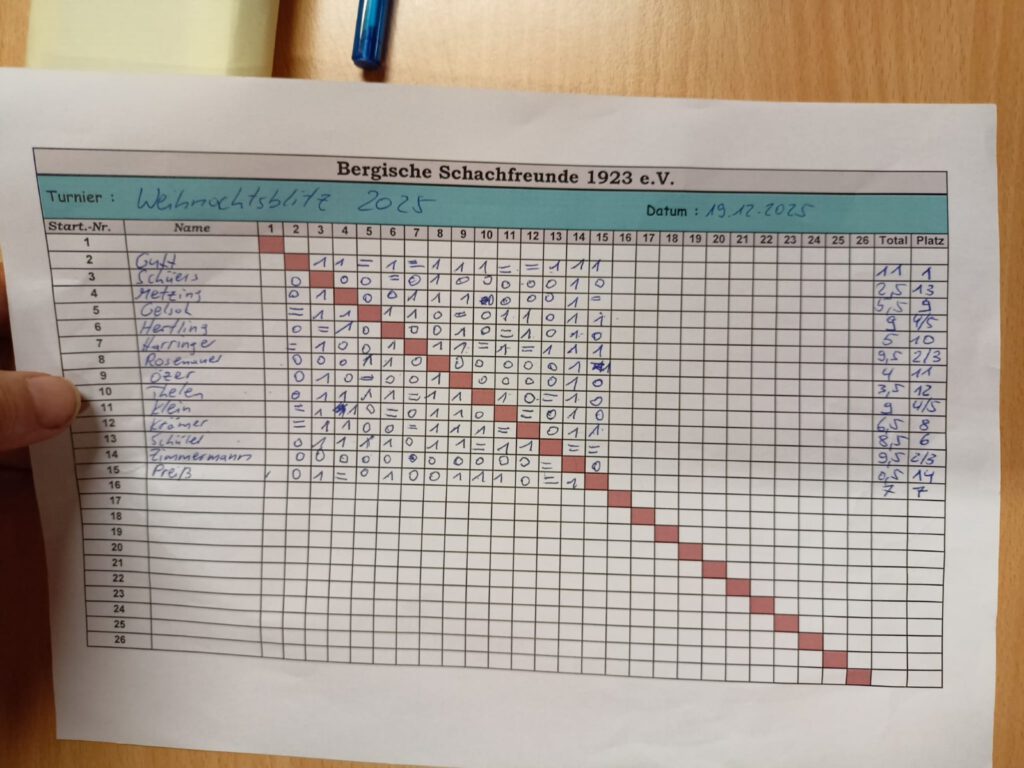 Bergische Schachfreunde 1923 e.V.
Turnier : Weihnachtsblitz 2025 Datum : 19.12.2025
Start.-Nr. Name 1 2 3 4 5 6 7 8 9 10 11 12 13 14 15 16 17 18 19 20 21 22 23 24 25 26 Total Platz
1
2 1 1 = 1 = 1 1 1 = = 1 1 1 11 1
3 Schüers 0 0 0 = 0 1 0 0 0 0 0 1 0 2,5 13
4 Metzing 0 1 0 0 1 1 1 0 0 0 0 1 = 5,5 9
5 = 1 1 1 1 0 = 0 1 1 0 1 1 9 4/5
6 Hertling 0 = 1 0 0 0 1 0 = 1 0 1 0 5 10
7 Harringer = 1 0 0 1 1 1 = 1 = 1 1 1 9,5 2/3
8 Rosenauer 0 0 0 1 1 0 0 0 0 0 0 1 1 4 11
9 Özer 0 1 0 = 0 0 1 0 0 0 0 1 0 3,5 12
10 Thelen 0 1 1 1 1 = 1 1 1 0 = 1 0 9 4/5
11 Klein = 1 1 0 = 0 1 1 0 = 0 1 0 6,5 8
12 Krämer = 1 1 0 0 = 1 1 1 = 0 1 1 8,5 6
13 Schüler 0 1 1 1 1 0 1 1 = 1 1 = = 9,5 2/3
14 Zimmermann 0 0 0 0 0 0 0 0 0 0 0 = 0 0,5 14
15 Preß 0 1 = 0 1 0 0 1 1 1 0 = 1 7 7
16
17
18
19
20
21
22
23
24
25
26